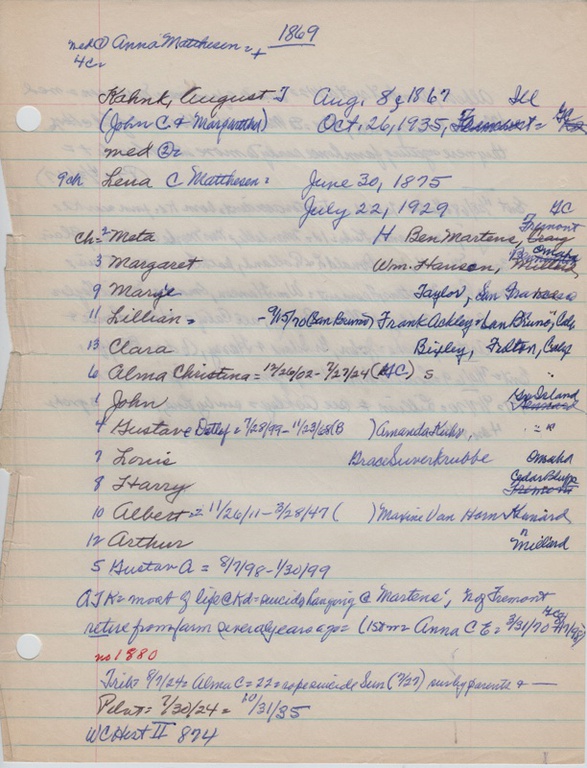 1869
med ① Anna Matthesen = +
4c=
Kahnk, August J Aug. 8, 1867 Ill
(John C. & Margaretha) Oct. 26, 1935, Fremont =
med ②=
9ch Lena C Matthesen = June 30, 1875
July 22, 1929 4C
Fremont
ch= 2 Meta H Ben Martens, Craig
Omaha
3 Margaret Wm. Hansen, Millard
9 Marie Taylor, San Francisco
11 Lillian = - 9/15/70 (San Bruno) Frank Ackley = San Bruno, Calif
13 Clara Bixley, Felton, Calif
6 Alma Christina = 12/26/02 - 7/27/24 (4C) S. "
Gr Island
1 John Kennard
4 Gustave Detlef = 7/28/99 - 11/23/65 (B ) Amanda Kuhr, " = "
7 Louis Grace Suverkrubbe Omaha
Cedar Bluffs
8 Harry Fremont
10 Albert = 11/26/11 - 3/28/47 ( ) Maxine Van Horn Kennard
12 Arthur " Millard
5 Gustav A = 8/7/98 - 1/30/99
AJK = most of life C Kd = suicide hanging @ Martens', n of Fremont
retire from farm several years ago = (1st m = Anna C E = 3/31/70
no 1880
Trib = 8/7/24 = Alma C = 22 = rope suicide Sun (7/27) surv by parents + —
Pilot = 7/30/24 = 10/31/35
WC Hist II 874